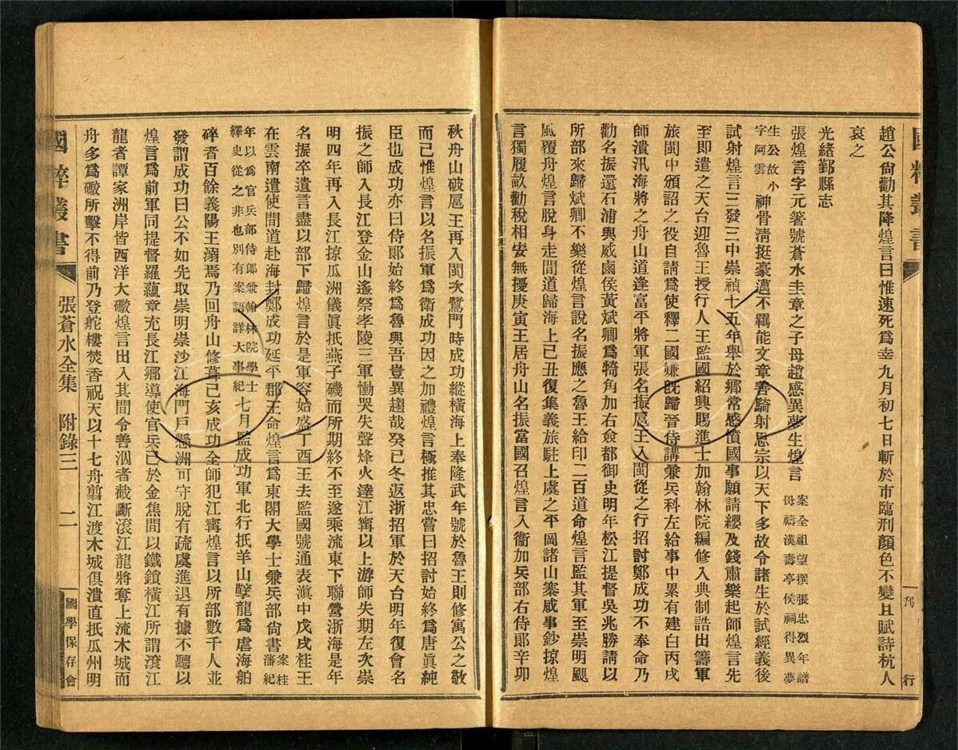 國粹叢書
刋行
趙公尙勸其降煌言曰惟速死爲幸九月初七日斬於市臨刑顏色不變且賦詩杭人
哀之
光緒鄞縣志
張煌言字元箸號蒼水圭章之子母趙感異夢生煌言
案全祖望撰張忠烈年譜
母禱漢壽亭侯祠得異夢
生公故小
字阿雲
神骨淸挺豪邁不羈能文章善騎射思宗以天下多故令諸生於試經義後
試射煌言三發三中崇禎十五年舉於鄕常感憤國事願請纓及錢肅樂起師煌言先
至卽遣之天台迎魯王授行人王監國紹興賜進士加翰林院編修入典制誥出籌軍
旅閩中頒詔之役自請爲使釋二國嫌旣歸晉侍講兼兵科左給事中累有建白丙戌
師潰汎海將之舟山道逢富平將軍張名振扈王入閩從之行招討鄭成功不奉命乃
勸名振還石浦與威鹵侯黃斌卿爲犄角加右僉都御史明年松江提督吳兆勝請以
所部來歸斌卿不樂從煌言說名振應之魯王給印二百道命煌言監其軍至崇明颶
風覆舟煌言脫身走間道歸海上已丑復集義旅駐上虞之平岡諸山寨咸事鈔掠煌
言獨履畝勸稅相安無擾庚寅王居舟山名振當國召煌言入衞加兵部右侍郞辛卯
秋舟山破扈王再入閩次鷺門時成功縱橫海上奉隆武年號於魯王則修寓公之敬
而已惟煌言以名振軍爲衞成功因之加禮煌言極推其忠嘗曰招討始終爲唐眞純
臣也成功亦曰侍郞始終爲魯與吾豈異趨哉癸已冬返浙招軍於天台明年復會名
振之師入長江登金山遙祭孝陵三軍慟哭失聲烽火達江寗以上游師失期左次崇
明四年再入長江掠瓜洲儀眞抵燕子磯而所期終不至遂乘流東下聯營浙海是年
名振卒遺言盡以部下歸煌言於是軍容始盛丁酉王去監國號通表滇中戊戌桂王
在雲南遣使間道赴海封鄭成功延平郡王命煌言爲東閣大學士兼兵部尙書
案桂
藩紀
年以爲官兵部侍郞兼翰林院學士
繹史從之非也別有案語詳大事紀
七月監成功軍北行抵羊山孽龍爲虐海舶
碎者百餘義陽王溺焉乃回舟山修葺已亥成功全師犯江寗煌言以所部數千人並
發謂成功曰公不如先取崇明崇沙江海門戶懸洲可守脫有疏虞進退有據不聽以
煌言爲前軍同提督羅蘊章充長江鄕導使官兵已於金焦間以鐵鎖橫江所謂滾江
龍者譚家洲岸皆西洋大礮煌言出入其間令善泅者截斷滾江龍將奪上流木城而
舟多爲礮所擊不得前乃登舵樓焚香祝天以十七舟翦江渡木城俱潰直抵瓜州明
國粹叢書
張蒼水全集
附錄三
二
國學保存會